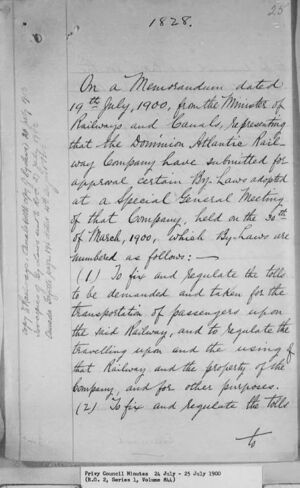 25
1828.
On a Memorandum dated
19th July, 1900, from the Minister of
Railways and Canals, representing
that the Dominion Atlantic Rail-
way Company have submitted for
approval certain By-Laws adopted
at a Special General Meeting
of that Company, held on the 30th
of March, 1900, which By-Laws are
numbered as follows:—
(1) To fix and regulate the tolls
to be demanded and taken for the
transportation of passengers upon
the said Railway, and to regulate the
travelling upon and the using of
that Railway and the property of the
Company, and for other purposes.
(2) To fix and regulate the tolls
to
Privy Council Minutes 24 July - 25 July 1900
(R.G. 2, Series 1, Volume 844)